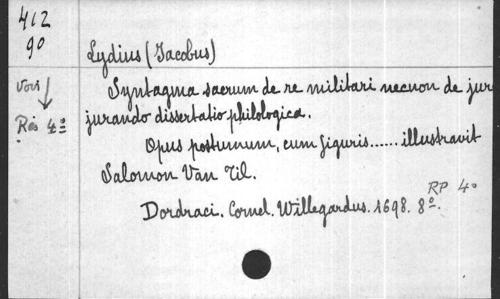 412
90
Lydius (Jacobus)
Voir
Rés 4º
Syntagma sacrum de re militari necnon de jure
jurando dissertatio philologica.
Opus postumum, cum figuris...... illustravit
Salomon Van Til.
RP 4º
Dordraci. Cornel. Willegardus. 1698. 8º.